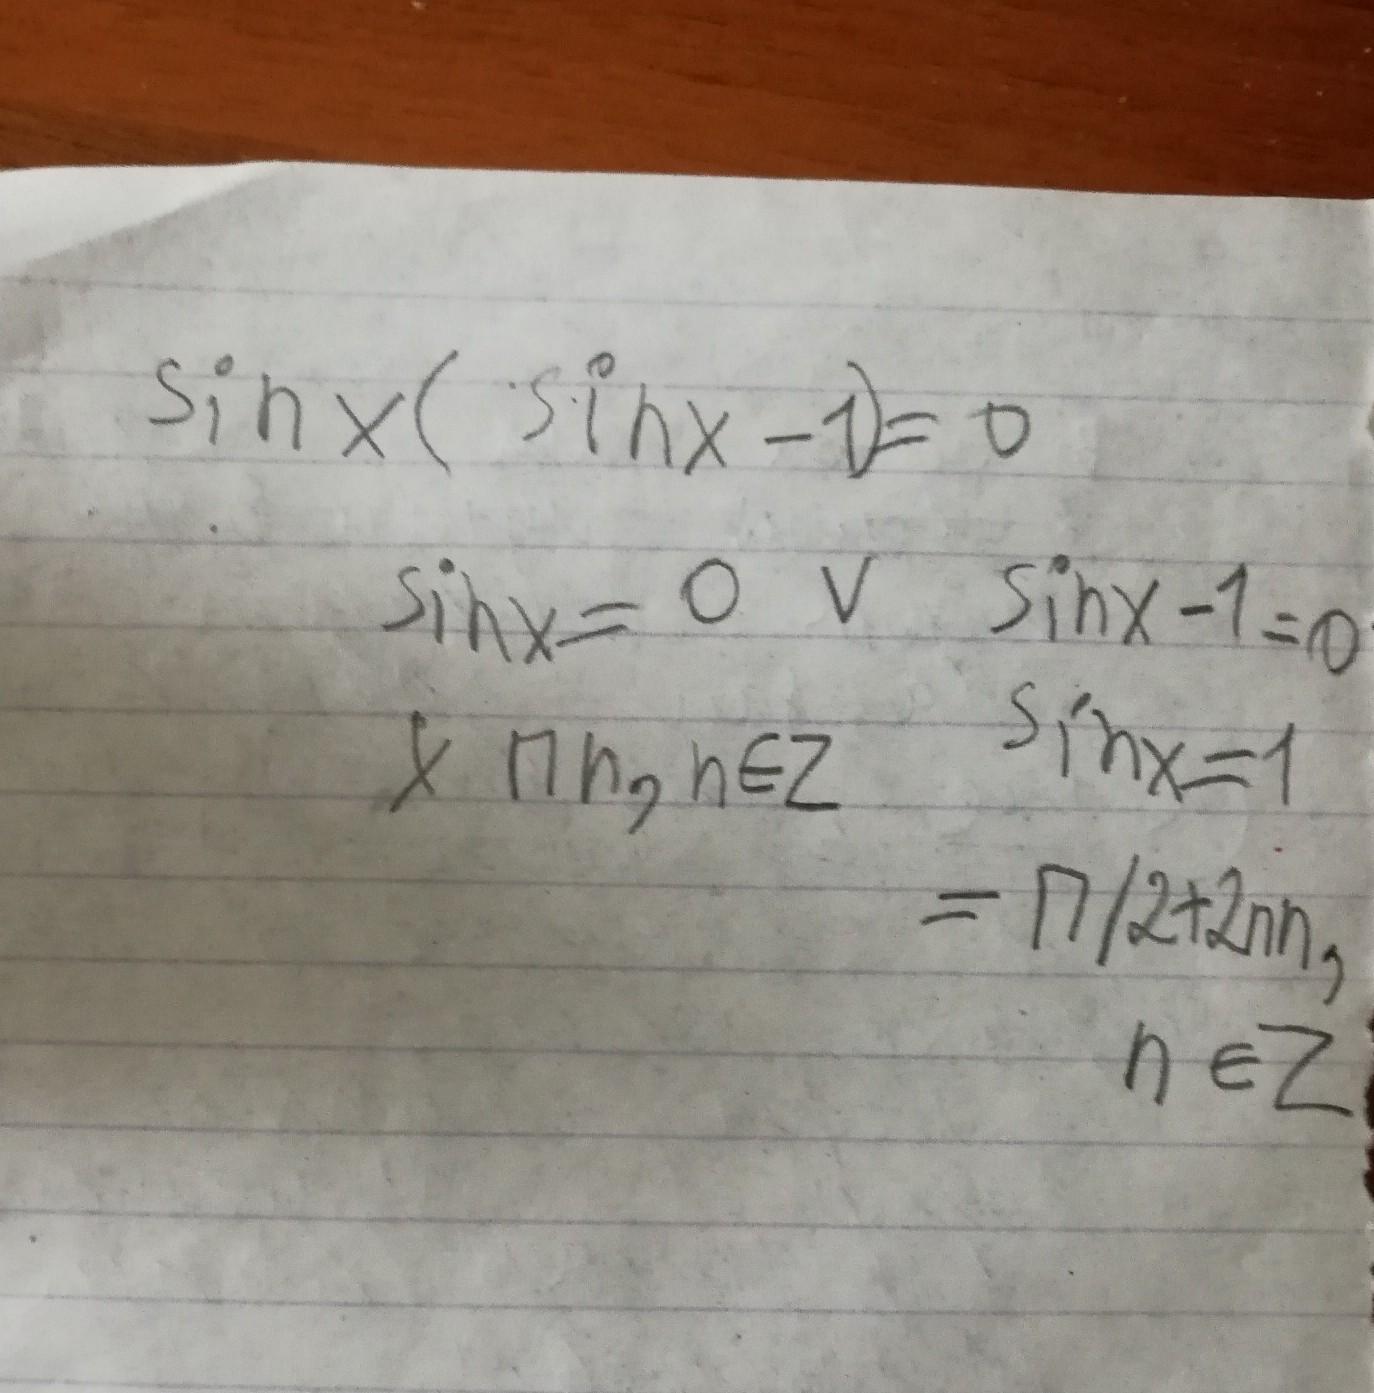 sin x( sinx -1)= 0
sinx= 0 V sinx -1=0
x πn, n∈Z sinx=1
= π/2+2πn,
n ∈Z